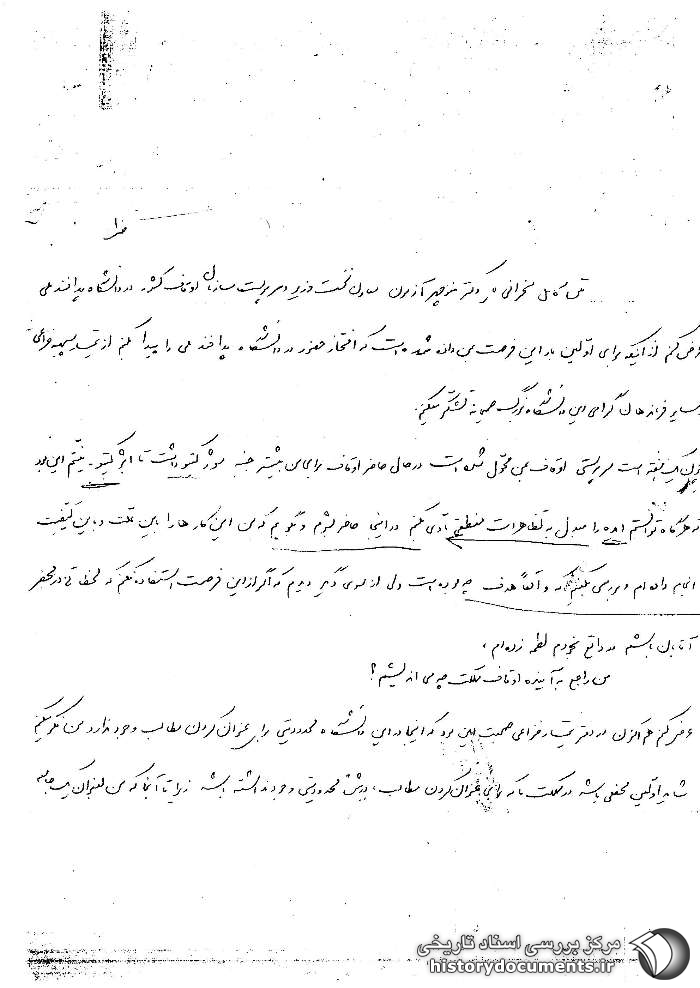 متن کامل سخنرانی دکتر منوچهر آزمون معاون نخست وزیر و سرپرست سازمان اوقاف کشور در دانشگاه پدافند ملی
عرض کنم از اینکه برای اولین بار این فرصت بمن داده شده است که افتخار حضور در دانشگاه پدافند ملی را پیدا کنم از تیمسار سپهبد
سایر فرماندهان گرامی این دانشگاه بزرگ صمیمانه تشکر میکنم.
چون یک هفته است سرپرستی اوقاف بمن محول شده است در حال حاضر اوقاف برای من بیشتر جنبه سوژکتیو داشت تا ابژکتیو.
که هرگاه توانستم ایده را مبدل به تظاهرات منطقی مادی کنم در اینجا حاضر شوم و بگویم که من این کارها را باین علت و باین کیفیت
انجام داده‌ام و بررسی بکنیم که واقعاً هدف چه بوده است ولی از سوی دیگر دیدم که اگر از این فرصت استفاده نکنم که لحظاتی در محضر
آقایان باشم در واقع بخودم لطمه زده‌ام،
من راجع به آینده اوقاف مملکت چه می اندیشم؟
عرض کنم هم اکنون در دفتر تیمسار صحبت این بود که اینجا در این دانشگاه محدودیتی برای عنوان کردن مطالب وجود ندارد من فکر میکنم
شاید اولین محفلی باشد در مملکت ما که برای عنوان کردن مطالب، محدودیتی وجود نداشته باشد زیرا تا آنجا که من بعنوان یک
مرکز بررسی اسناد تاریخی
historydocuments.ir